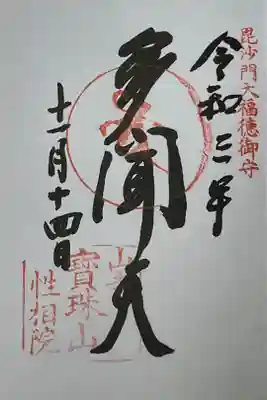 毘沙門天福徳御守
令和三年
多聞天
十一月十四日
寳珠山
性相院